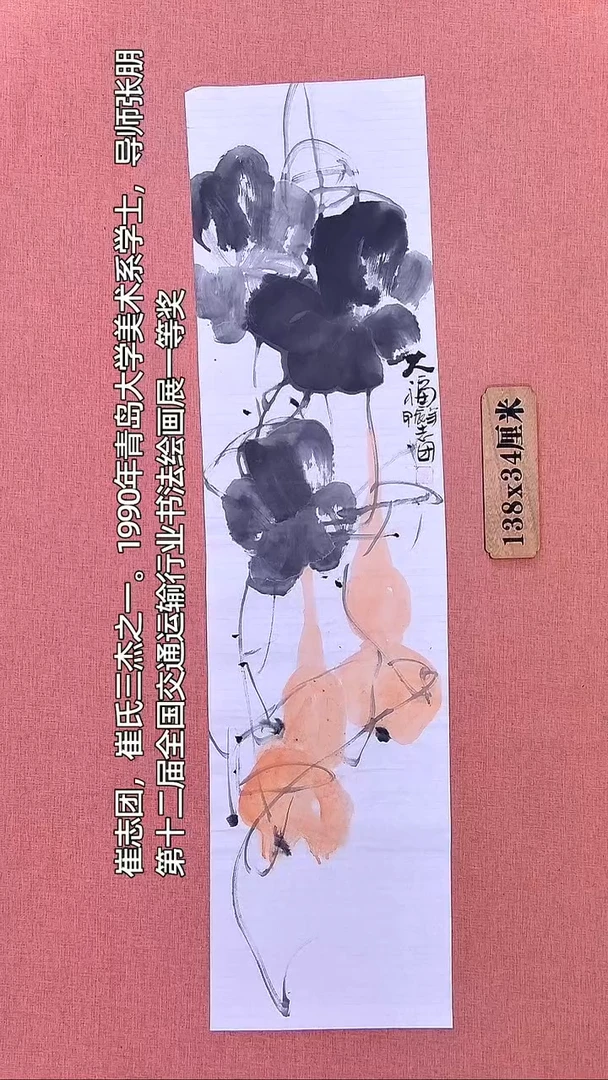 崔志团，崔氏三杰之一。1990年青岛大学美术系学士，导师张朋
第十二届全国交通运输行业书法绘画展一等奖
大福
138x34厘米